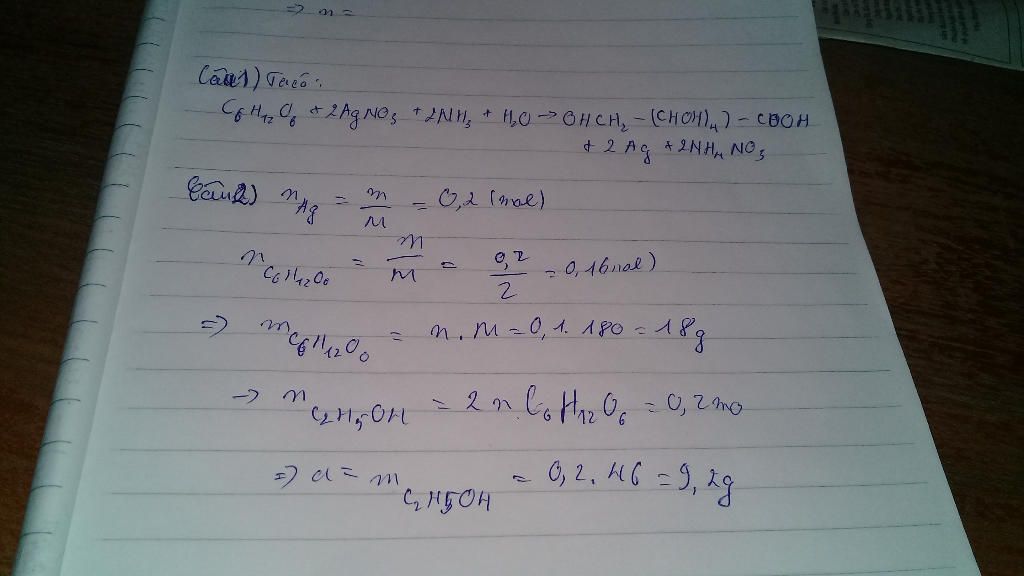 => n =
Câu1) Ta có:
C6H12O6 + 2AgNO3 + 2NH3 + H2O → OHCH2 - (CHOH)4) - COOH
+ 2Ag + 2NH4NO3
Câu2) nAg = m/M = 0,2 (mol)
nC6H12O6 = m/M = 0,2/2 = 0,1(mol)
=> mC6H12O6 = n.M = 0,1.180 = 18g
→ nC2H5OH = 2n.C6H12O6 = 0,2mo
=> a = mC2H5OH = 0,2.46 = 9,2g